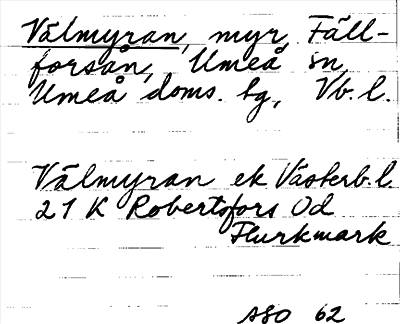 Välmyran, myr, Fäll-
forsån, Umeå sn
Umeå doms. tg, Vb. l.
Välmyran ek Västerb. l.
21 K Robertsfors Od
Flurkmark
ASO 62